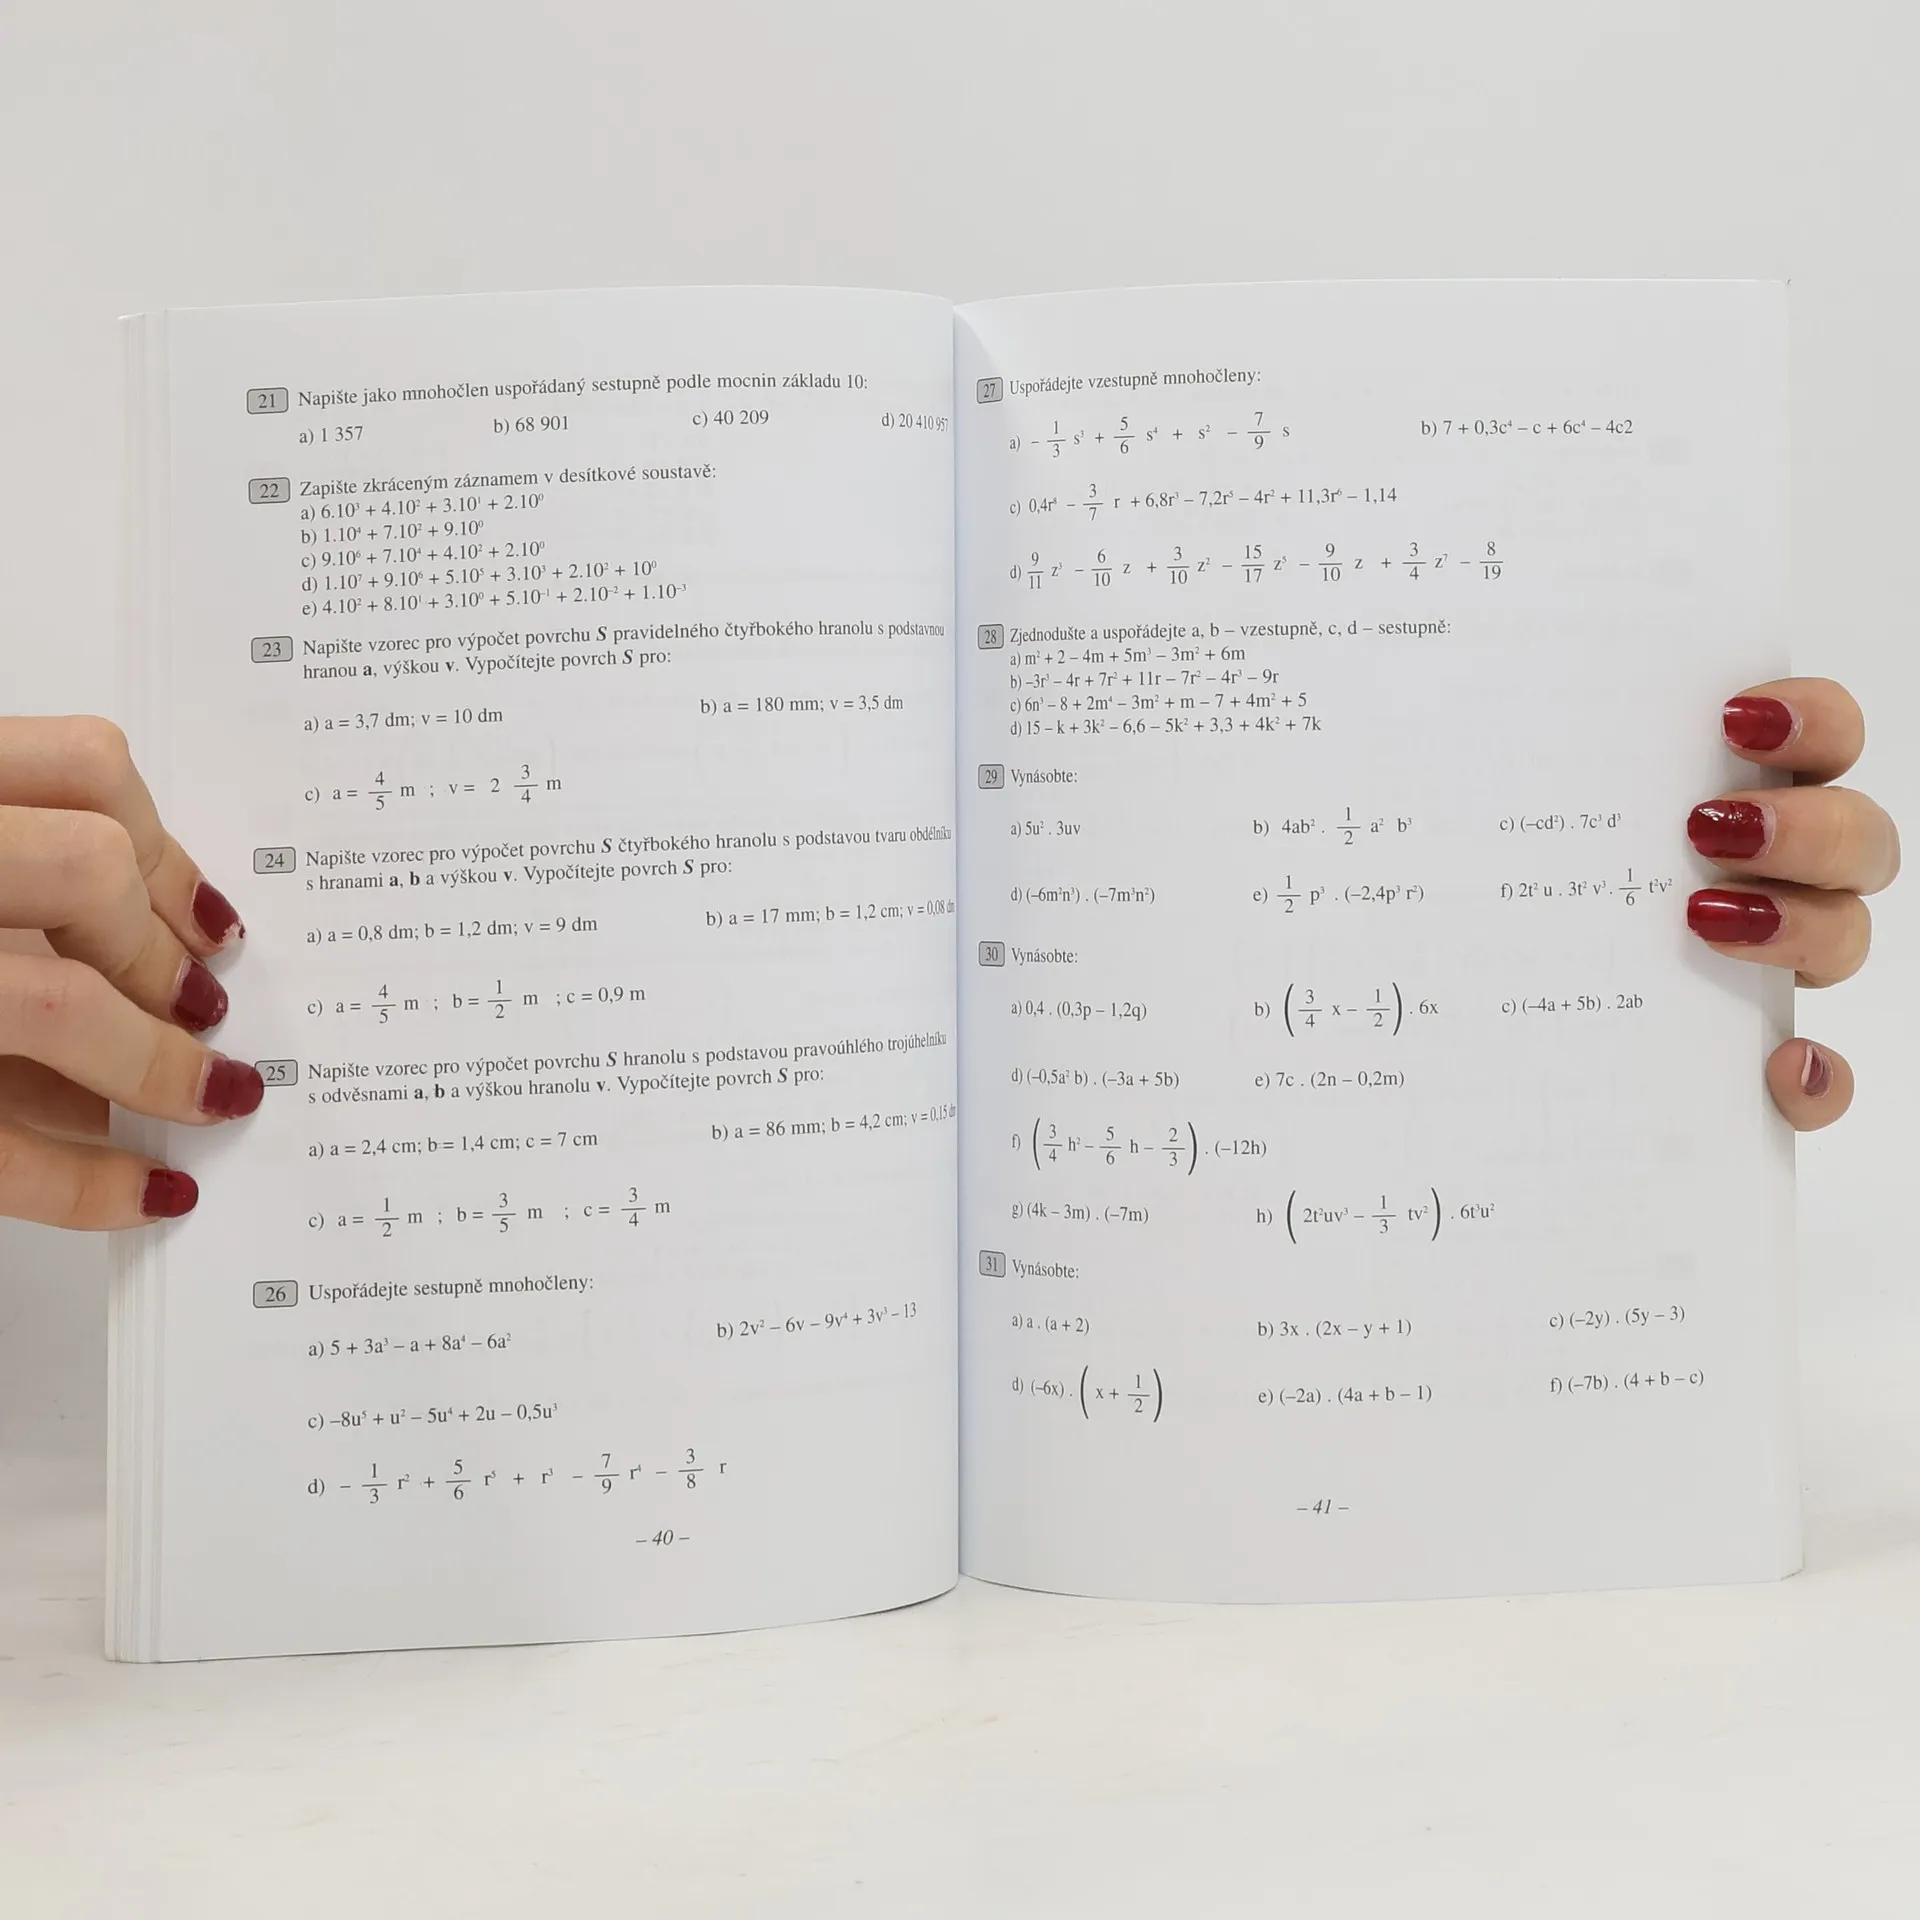 21 Napište jako mnohočlen uspořádaný sestupně podle mocnin základu 10:
a) 1 357 b) 68 901 c) 40 209 d) 20 410 957
22 Zapište zkráceným záznamem v desítkové soustavě:
a) 6.10³ + 4.10² + 3.10¹ + 2.10⁰
b) 1.10⁴ + 7.10² + 9.10⁰
c) 9.10⁶ + 7.10⁴ + 4.10² + 2.10⁰
d) 1.10⁷ + 9.10⁶ + 5.10⁵ + 3.10³ + 2.10² + 10⁰
e) 4.10² + 8.10¹ + 3.10⁰ + 5.10⁻¹ + 2.10⁻² + 1.10⁻³
23 Napište vzorec pro výpočet povrchu S pravidelného čtyřbokého hranolu s podstavnou
hranou a, výškou v. Vypočítejte povrch S pro:
a) a = 3,7 dm; v = 10 dm b) a = 180 mm; v = 3,5 dm
c) a = 4/5 m ; v = 2 3/4 m
24 Napište vzorec pro výpočet povrchu S čtyřbokého hranolu s podstavou tvaru obdélníku
s hranami a, b a výškou v. Vypočítejte povrch S pro:
a) a = 0,8 dm; b = 1,2 dm; v = 9 dm b) a = 17 mm; b = 1,2 cm; v = 0,08 dm
c) a = 4/5 m ; b = 1/2 m ; c = 0,9 m
25 Napište vzorec pro výpočet povrchu S hranolu s podstavou pravoúhlého trojúhelníku
s odvěsnami a, b a výškou hranolu v. Vypočítejte povrch S pro:
a) a = 2,4 cm; b = 1,4 cm; c = 7 cm b) a = 86 mm; b = 4,2 cm; v = 0,15 dm
c) a = 1/2 m ; b = 3/5 m ; c = 3/4 m
26 Uspořádejte sestupně mnohočleny:
a) 5 + 3a³ – a + 8a⁴ – 6a² b) 2v² – 6v – 9v⁴ + 3v³ – 13
c) –8u⁵ + u² – 5u⁴ + 2u – 0,5u³
d) – 1/3 r² + 5/6 r⁵ + r³ – 7/9 r⁴ – 3/8 r
– 40 –
27 Uspořádejte vzestupně mnohočleny:
a) – 1/3 s³ + 5/6 s⁴ + s² – 7/9 s b) 7 + 0,3c⁴ – c + 6c⁴ – 4c2
c) 0,4r⁸ – 3/7 r + 6,8r³ – 7,2r⁵ – 4r² + 11,3r⁶ – 1,14
d) 9/11 z³ – 6/10 z + 3/10 z² – 15/17 z⁵ – 9/10 z + 3/4 z⁷ – 8/19
28 Zjednodušte a uspořádejte a, b – vzestupně, c, d – sestupně:
a) m² + 2 – 4m + 5m³ – 3m² + 6m
b) –3r³ – 4r + 7r² + 11r – 7r² – 4r³ – 9r
c) 6n³ – 8 + 2m⁴ – 3m² + m – 7 + 4m² + 5
d) 15 – k + 3k² – 6,6 – 5k² + 3,3 + 4k² + 7k
29 Vynásobte:
a) 5u² . 3uv b) 4ab² . 1/2 a² b³ c) (–cd²) . 7c³ d³
d) (–6m²n³) . (–7m³n²) e) 1/2 p³ . (–2,4p³ r²) f) 2t² u . 3t² v³ . 1/6 t²v²
30 Vynásobte:
a) 0,4 . (0,3p – 1,2q) b) (3/4 x – 1/2) . 6x c) (–4a + 5b) . 2ab
d) (–0,5a² b) . (–3a + 5b) e) 7c . (2n – 0,2m)
f) (3/4 h² – 5/6 h – 2/3) . (–12h)
g) (4k – 3m) . (–7m) h) (2t²uv³ – 1/3 tv²) . 6t³u²
31 Vynásobte:
a) a . (a + 2) b) 3x . (2x – y + 1) c) (–2y) . (5y – 3)
d) (–6x) . (x + 1/2) e) (–2a) . (4a + b – 1) f) (–7b) . (4 + b – c)
– 41 –